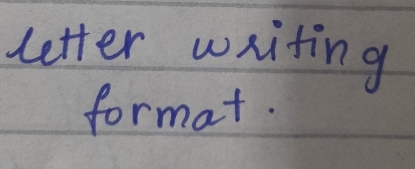 letter writing
format.